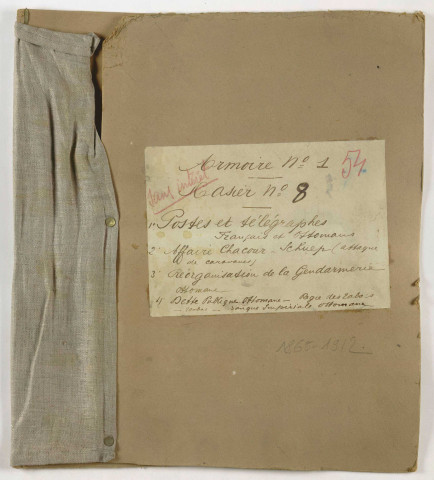 Armoire N° 1
54
sans intérêt
Casier N° 8
1° Postes et télégraphes
Français et Ottomans
2° Affaire Chacour - Schuep (attaque
de caravanes)
3° Réorganisation de la Gendarmerie
Ottomane
4 Dette Publique Ottomane - Régie des Tabacs
- Banque Impériale Ottomane
1865-1912.